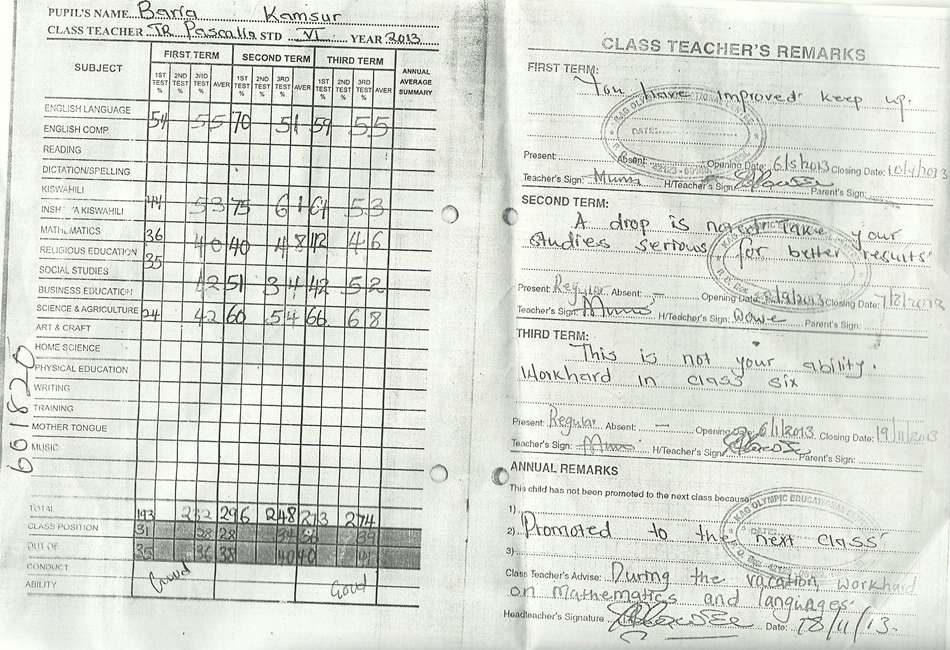 PUPIL'S NAME Baria Kamsur
CLASS TEACHER TR Pascalia STD VI YEAR 2013
SUBJECT FIRST TERM SECOND TERM THIRD TERM ANNUAL AVERAGE SUMMARY
1ST TEST % 2ND TEST % 3RD TEST % AVER 1ST TEST % 2ND TEST % 3RD TEST % AVER 1ST TEST % 2ND TEST % 3RD TEST % AVER
ENGLISH LANGUAGE
ENGLISH COMP. 54 55 70 51 59 55
READING
DICTATION/SPELLING
KISWAHILI
INSHA YA KISWAHILI 44 53 75 61 61 53
MATHEMATICS 36
RELIGIOUS EDUCATION 40 40 48 42 46
SOCIAL STUDIES 35
BUSINESS EDUCATION 42 51 34 42 52
SCIENCE & AGRICULTURE 24 42 60 54 66 68
ART & CRAFT
HOME SCIENCE
PHYSICAL EDUCATION
WRITING
TRAINING
MOTHER TONGUE
MUSIC
TOTAL 193 232 296 248 273 274
CLASS POSITION 31 38 28 39
OUT OF 35 36 38 40 40
CONDUCT Good
ABILITY Good
661820
CLASS TEACHER'S REMARKS
FIRST TERM:
You have improved keep up.
Present: Absent: Opening Date: 6/5/2013 Closing Date:
Teacher's Sign: H/Teacher's Sign: Parent's Sign:
SECOND TERM:
A drop is noted take your
studies serious for better results
Present: Regular Absent: — Opening Date: Closing Date:
Teacher's Sign: H/Teacher's Sign: Parent's Sign:
THIRD TERM:
This is not your ability.
Workhard in class six
Present: Regular Absent: — Opening Date: 6/1/2013 Closing Date: 19/11/2013
Teacher's Sign: H/Teacher's Sign: Parent's Sign:
ANNUAL REMARKS
This child has not been promoted to the next class because
1)
2) Promoted to the next class
3)
Class Teacher's Advise: During the vacation workhard
on mathematics and languages.
Headteacher's Signature Date: 18/11/13.
KAG OLYMPIC EDUCATION